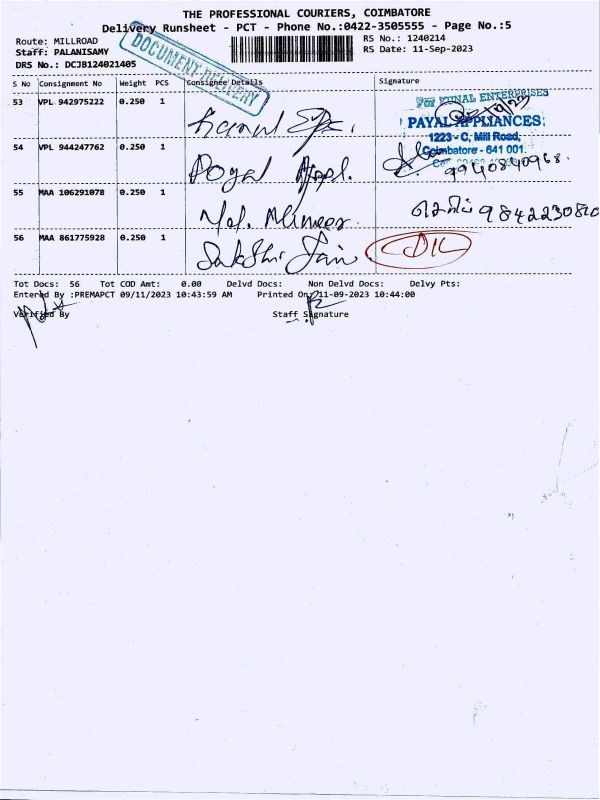 THE PROFESSIONAL COURIERS, COIMBATORE
Delivery Runsheet - PCT - Phone No.:0422-3505555 - Page No.:5
Route: MILLROAD
Staff: PALANISAMY
DRS No.: DCJB124021405
DOCUMENT DELIVERY
RS No.: 1240214
RS Date: 11-Sep-2023
S No Consignment No Weight PCS Consignee Details Signature
53 VPL 942975222 0.250 1
54 VPL 944247762 0.250 1 Payal Appl.
55 MAA 106291078 0.250 1
56 MAA 861775928 0.250 1 Sakshi Jain
For KUNAL ENTERPRISES
PAYAL APPLIANCES
1223 - C, Mill Road,
Coimbatore - 641 001.
9940840968.
9842230810
Tot Docs: 56 Tot COD Amt: 0.00 Delvd Docs: Non Delvd Docs: Delvy Pts:
Entered By :PREMAPCT 09/11/2023 10:43:59 AM Printed On: 11-09-2023 10:44:00
Verified By Staff Signature